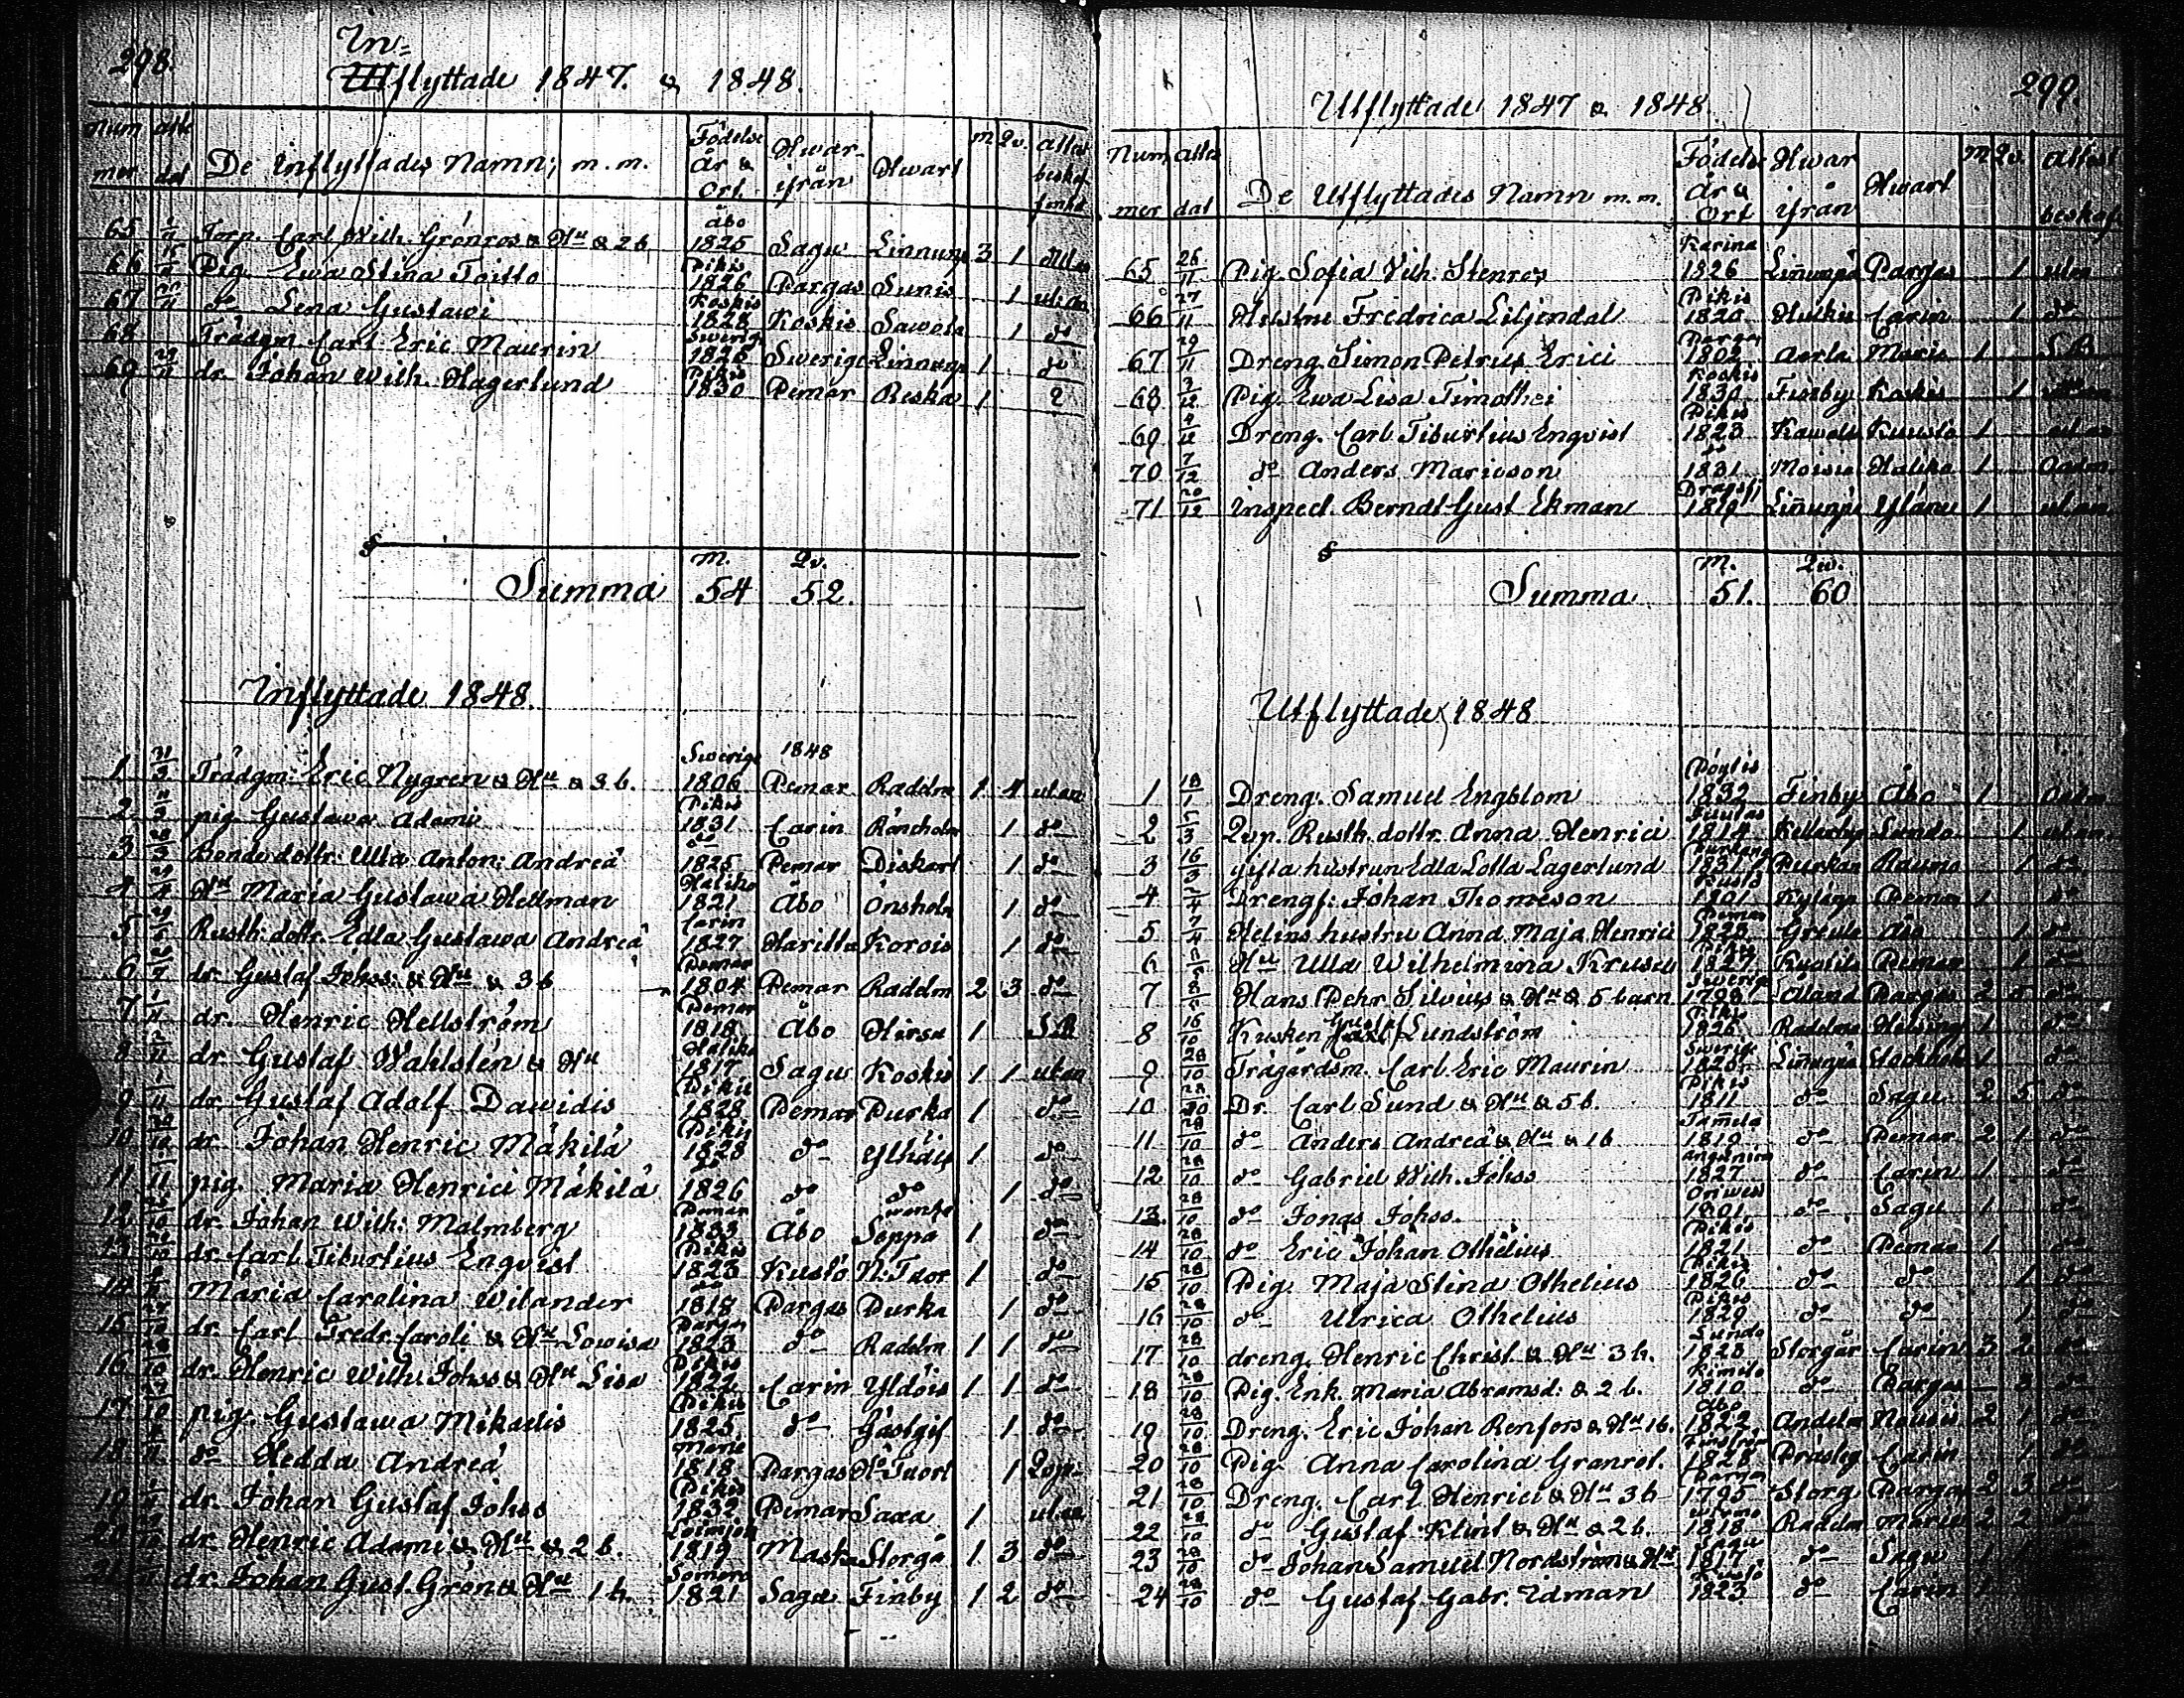 298.
In=
Utflyttade 1847. & 1848.
Num mer | atte dat | De inflyttades Namn; m. m. | Födelse År & Ort. | Hwar- ifrån | Hwart | M | Qv. | attest beskaf
65 Torp. Carl Wilh. Grönroos & Hu & 2 b Åbo 1825 Sagu Linnunp 3 1 utan
66 Pig. Ewa Stina Toitto Pikis 1826 Pargas Sunis 1 utan
67 do Lena Gustawi Koskis 1828 Koskis Sawola 1 do
68 Trädgm Carl Eric Maurin Swerig 1826 Swerige Linnunp 1 do
69 dr. Johan Wilh. Hagerlund Pikis 1830 Pemar Reska 1 2
M. Qv.
Summa 54 52.
Inflyttade 1848.
1 Trädgm: Eric Nygren & Hu & 3 b. Swerige 1806 1848 Pemar Raddm 1 4 utan
2 pig. Gustawa Adami Pikis 1831 Carin Röncholm 1 do
3 Bonde dottr: Ulla Anton: Andreä do 1825 Pemar Diskart 1 do
4 Hu Maria Gustawa Hellman Haliko 1821 Åbo Önsholm 1 do
5 Rusth: dottr. Edla Gustawa Andreä Carin 1827 Haritta Korois 1 do
6 dr. Gustaf Johss: & Hu & 3 b Pemar 1804 Pemar Raddm 2 3 do
7 dr. Henric Hellström Pemar 1818 Åbo Hirsa 1 S.B
8 dr. Gustaf Wahlstén & Hu Haliko 1817 Sagu Koskis 1 1 utan
9 dr. Gustaf Adolf Dawidis Pikis 1828 Pemar Purka 1 do
10 dr. Johan Henric Mäkilä Pikis 1828 do Ylhäis 1 do
11 pig. Maria Henrici Mäkilä do 1826 do do 1 do
12 dr. Johan Wilh: Malmberg Pemar 1833 Åbo Seppä 1 do
13 dr. Carl Tiburtius Engvist Pikis 1823 Kustö N: Tuor 1 do
14 Maria Carolina Wilander do 1818 Pargas Purka 1 do
15 dr. Carl Fredr. Caroli & Hu Lowisa Pargas 1823 do Raddm 1 1 do
16 dr. Henric Wilh. Johss & Hu Lisa Pikis 1822 Carin Yldöis 1 1 do
17 pig. Gustawa Mikaelis Pikis 1825 do Gästgif 1 do
18 do Hedda Andreä Marie 1818 Pargas H. Tuort 1 Qvp:
19 dr. Johan Gustaf Johss Pikis 1832 Pemar Saxa 1 utan
20 dr. Henric Adami & Hu & 2 b. Loimjok 1819 Masku Storgå 1 3 do
21 dr. Johan Gust. Grön & Hu 1 b. Somero 1821 Sagu Finby 1 2 do
299.
Utflyttade 1847 & 1848.
Num mer | attes dat | De Utflyttades Namn m. m. | Födelse År & Ort | Hwar ifrån | Hwart | M | Qv. | Attest beskaf.
65 26/11 Pig. Sofia Wilh. Stenros Karina 1826 Linnunpä Pargas 1 utan
66 27/11 Hustru Fredrica Liljendal Pikis 1820 Huttis Carin 1 do
67 29/11 Dreng Simon Petrus Erici Pargas 1802 Aerla Marie 1 S.B
68 3/12 Pig. Ewa Lisa Timothei Koskis 1830 Finby Koskis 1
69 4/12 Dreng. Carl Tiburtius Engvist Pikis 1823 Kawola Kuusto 1 utan
70 7/12 do Anders Maricson do 1831 Moisio Haliko 1 Oadm.
71 20/12 Inspect. Berndt Gust Ekman Dragsfj 1819 Linnunpä Yläne 1 utan
M. Qv.
Summa 51. 60
Utflyttade 1848
1 18/1 Dreng. Samuel Engblom Pöytis 1832 Finby Åbo 1 Oadm
2 Qvp. Rusth. dottr. Anna Henrici 1814 Lundo 1 utan
3 16/3 gifta hustrun Edla Lotta Lagerlund 1831 Purkan Raumo 1 do
4 Drengf: Johan Thomeson Kustö 1801 Pemar 1 do
5 7/4 Helins hustru Anna Maja Henrici Pemar 1825 Åbo 1 do
6 Hu Ulla Wilhelmina Kruse Pikis 1827 Pemar 1 do
7 Hans Pehr Silvius & Hu & 5 barn Swerige 1798 Pargas 2 5 do
8 16/10 Kusken Gustaf Lundström Pikis 1826 Raddm Helsing 1 do
9 28/10 Trägårdsm. Carl Eric Maurin Swerige 1826 Linnunpä Stockholm 1 do
10 28/10 Dr. Carl Sund & Hu & 5 b. Pikis 1811 do Sagu 2 5 do
11 28/10 do Anders Andreä & Hu & 1 b Tamela 1819 do Pemar 2 1 do
12 28/10 do Gabriel Wilh. Johss 1827 do Carin 1 do
13 28/10 do Jonas Johss. Oriwesi 1801 do Sagu 1 do
14 28/10 do Eric Johan Othelius Pikis 1821 do Pemar 1 do
15 28/10 Pig. Maja Stina Othelius Pikis 1826 do do 1 do
16 28/10 do Ulrica Othelius Pikis 1829 do do 1 do
17 28/10 dreng. Henric Christ & Hu 3 b. Lundo 1823 Storgår Carin 3 2 do
18 28/10 Pig. Enk. Maria Abramsd: & 2 b. Kimito 1810 do Pargas 3 do
19 28/10 Dreng. Eric Johan Renfors & Hu 1 b. Åbo 1822 Andelm Nousis 2 1 do
20 28/10 Pig. Anna Carolina Granrot. 1828 Prästg Carin 1 do
21 28/10 Dreng. Carl Henrici & Hu 3 b Pargas 1795 Storg Pargas 2 3 do
22 28/10 do Gustaf Klint & Hu & 2 b. Wirmo 1818 Raddm Marie 2 2 do
23 28/10 do Johan Samuel Nordström & Hu Sagu 1817 do Sagu 1 1 do
24 28/10 do Gustaf Gabr. Idman Kustö 1823 do Carin 1